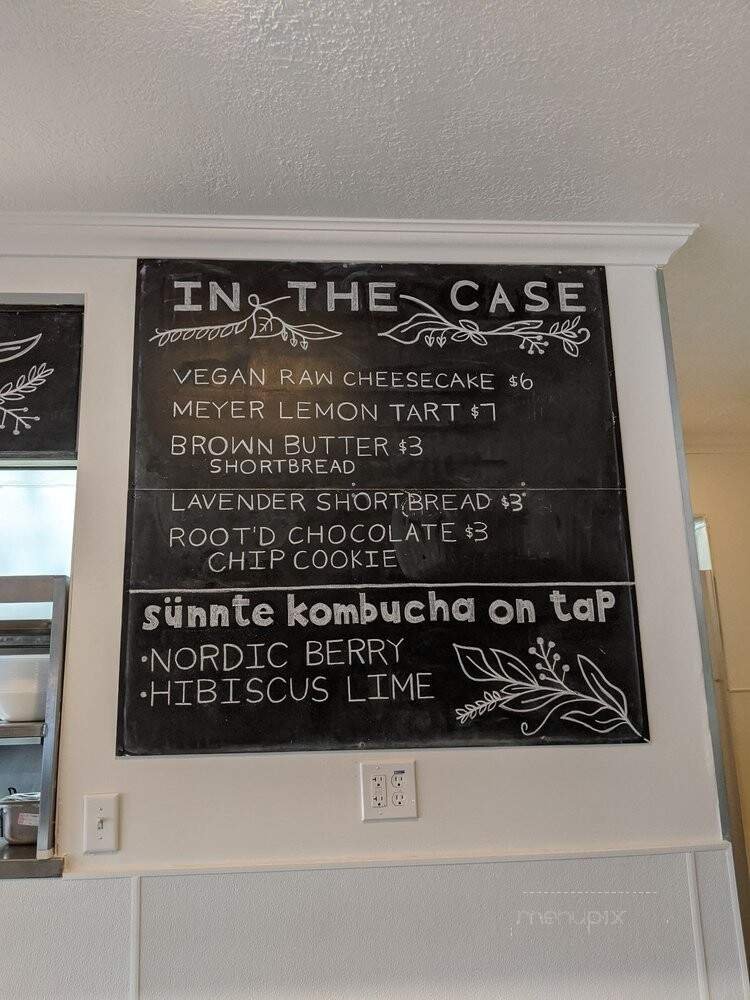 IN THE CASE
VEGAN RAW CHEESECAKE $6
MEYER LEMON TART $7
BROWN BUTTER $3
SHORTBREAD
LAVENDER SHORTBREAD $3
ROOT'D CHOCOLATE $3
CHIP COOKIE
sünnte kombucha on tap
•NORDIC BERRY
•HIBISCUS LIME
menupix